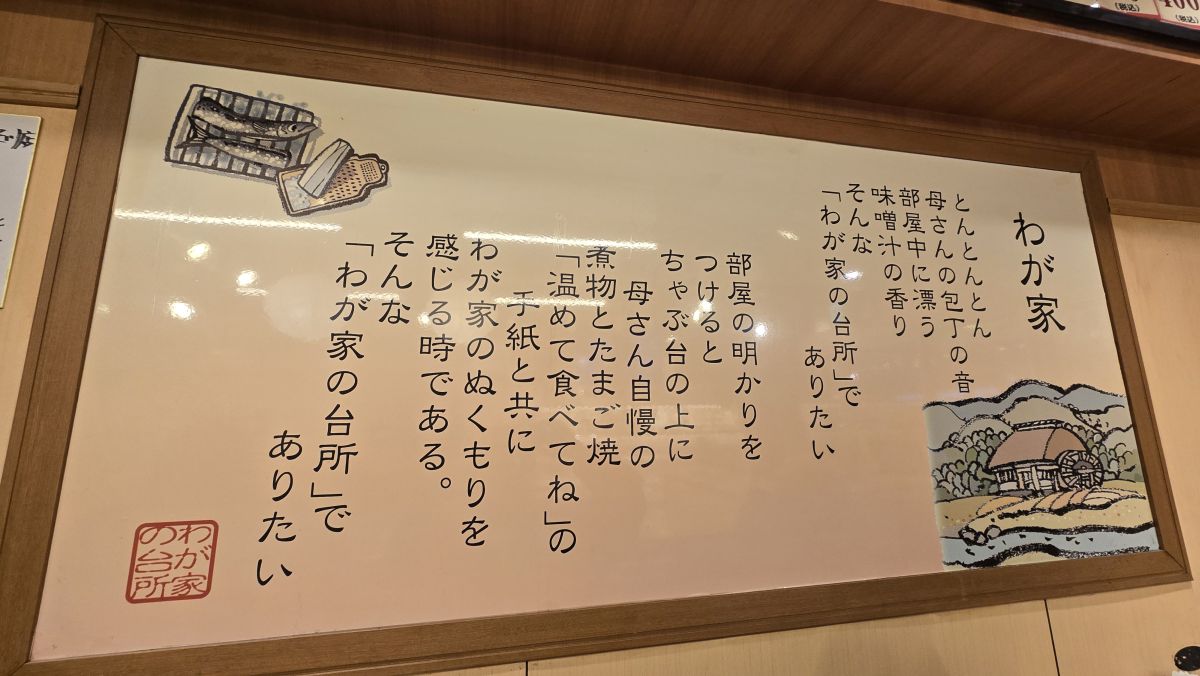 わが家
とんとんとん
母さんの包丁の音
部屋中に漂う
味噌汁の香り
そんな
「わが家の台所」で
ありたい
部屋の明かりを
つけると
ちゃぶ台の上に
母さん自慢の
煮物とたまご焼
「温めて食べてね」の
手紙と共に
わが家のぬくもりを
感じる時である。
そんな
「わが家の台所」で
ありたい
わが家
の台所
(税込)
400
(税込)